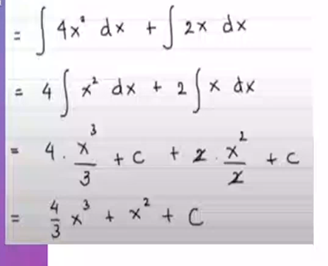 = ∫ 4x² dx + ∫ 2x dx
= 4 ∫ x² dx + 2 ∫ x dx
= 4 . x³/3 + C + 2 . x²/2 + C
= 4/3 x³ + x² + C